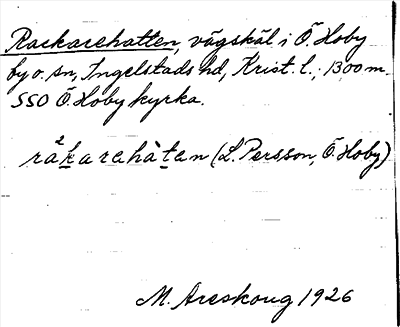 Rackarehatten, vägskäl i Ö. Hoby
by o. sn, Ingelstads hd, Krist. l.; 1300 m.
SSO Ö. Hoby kyrka.
rà²k̲arehàt̲en (L. Persson, Ö. Hoby)
M. Areskoug 1926